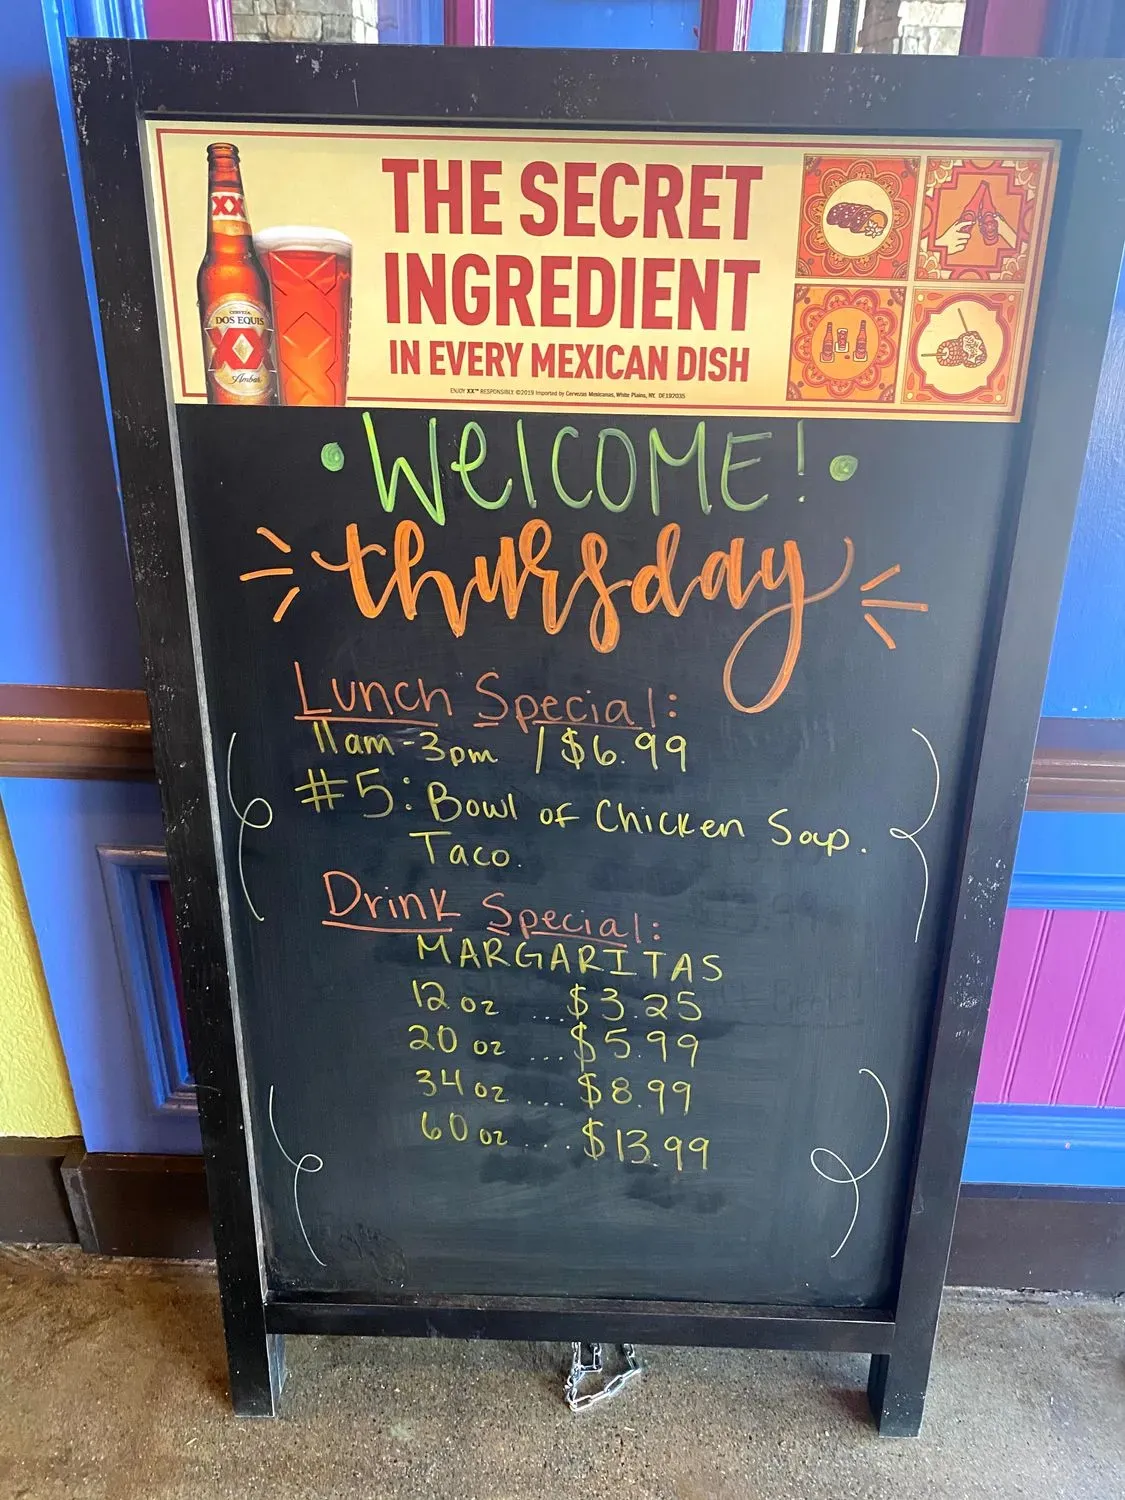 THE SECRET
INGREDIENT
IN EVERY MEXICAN DISH
ENJOY XX™ RESPONSIBLY. ©2019 Imported by Cervezas Mexicanas, White Plains, NY. DE192035
XX
CERVEZA
DOS EQUIS
XX
Ambar
• WelCOME! •
thursday
Lunch Special:
11am-3pm / $6.99
#5: Bowl of Chicken Soup.
Taco.
Drink Special:
MARGARITAS
12 oz ... $3.25
20 oz ... $5.99
34 oz ... $8.99
60 oz .... $13.99